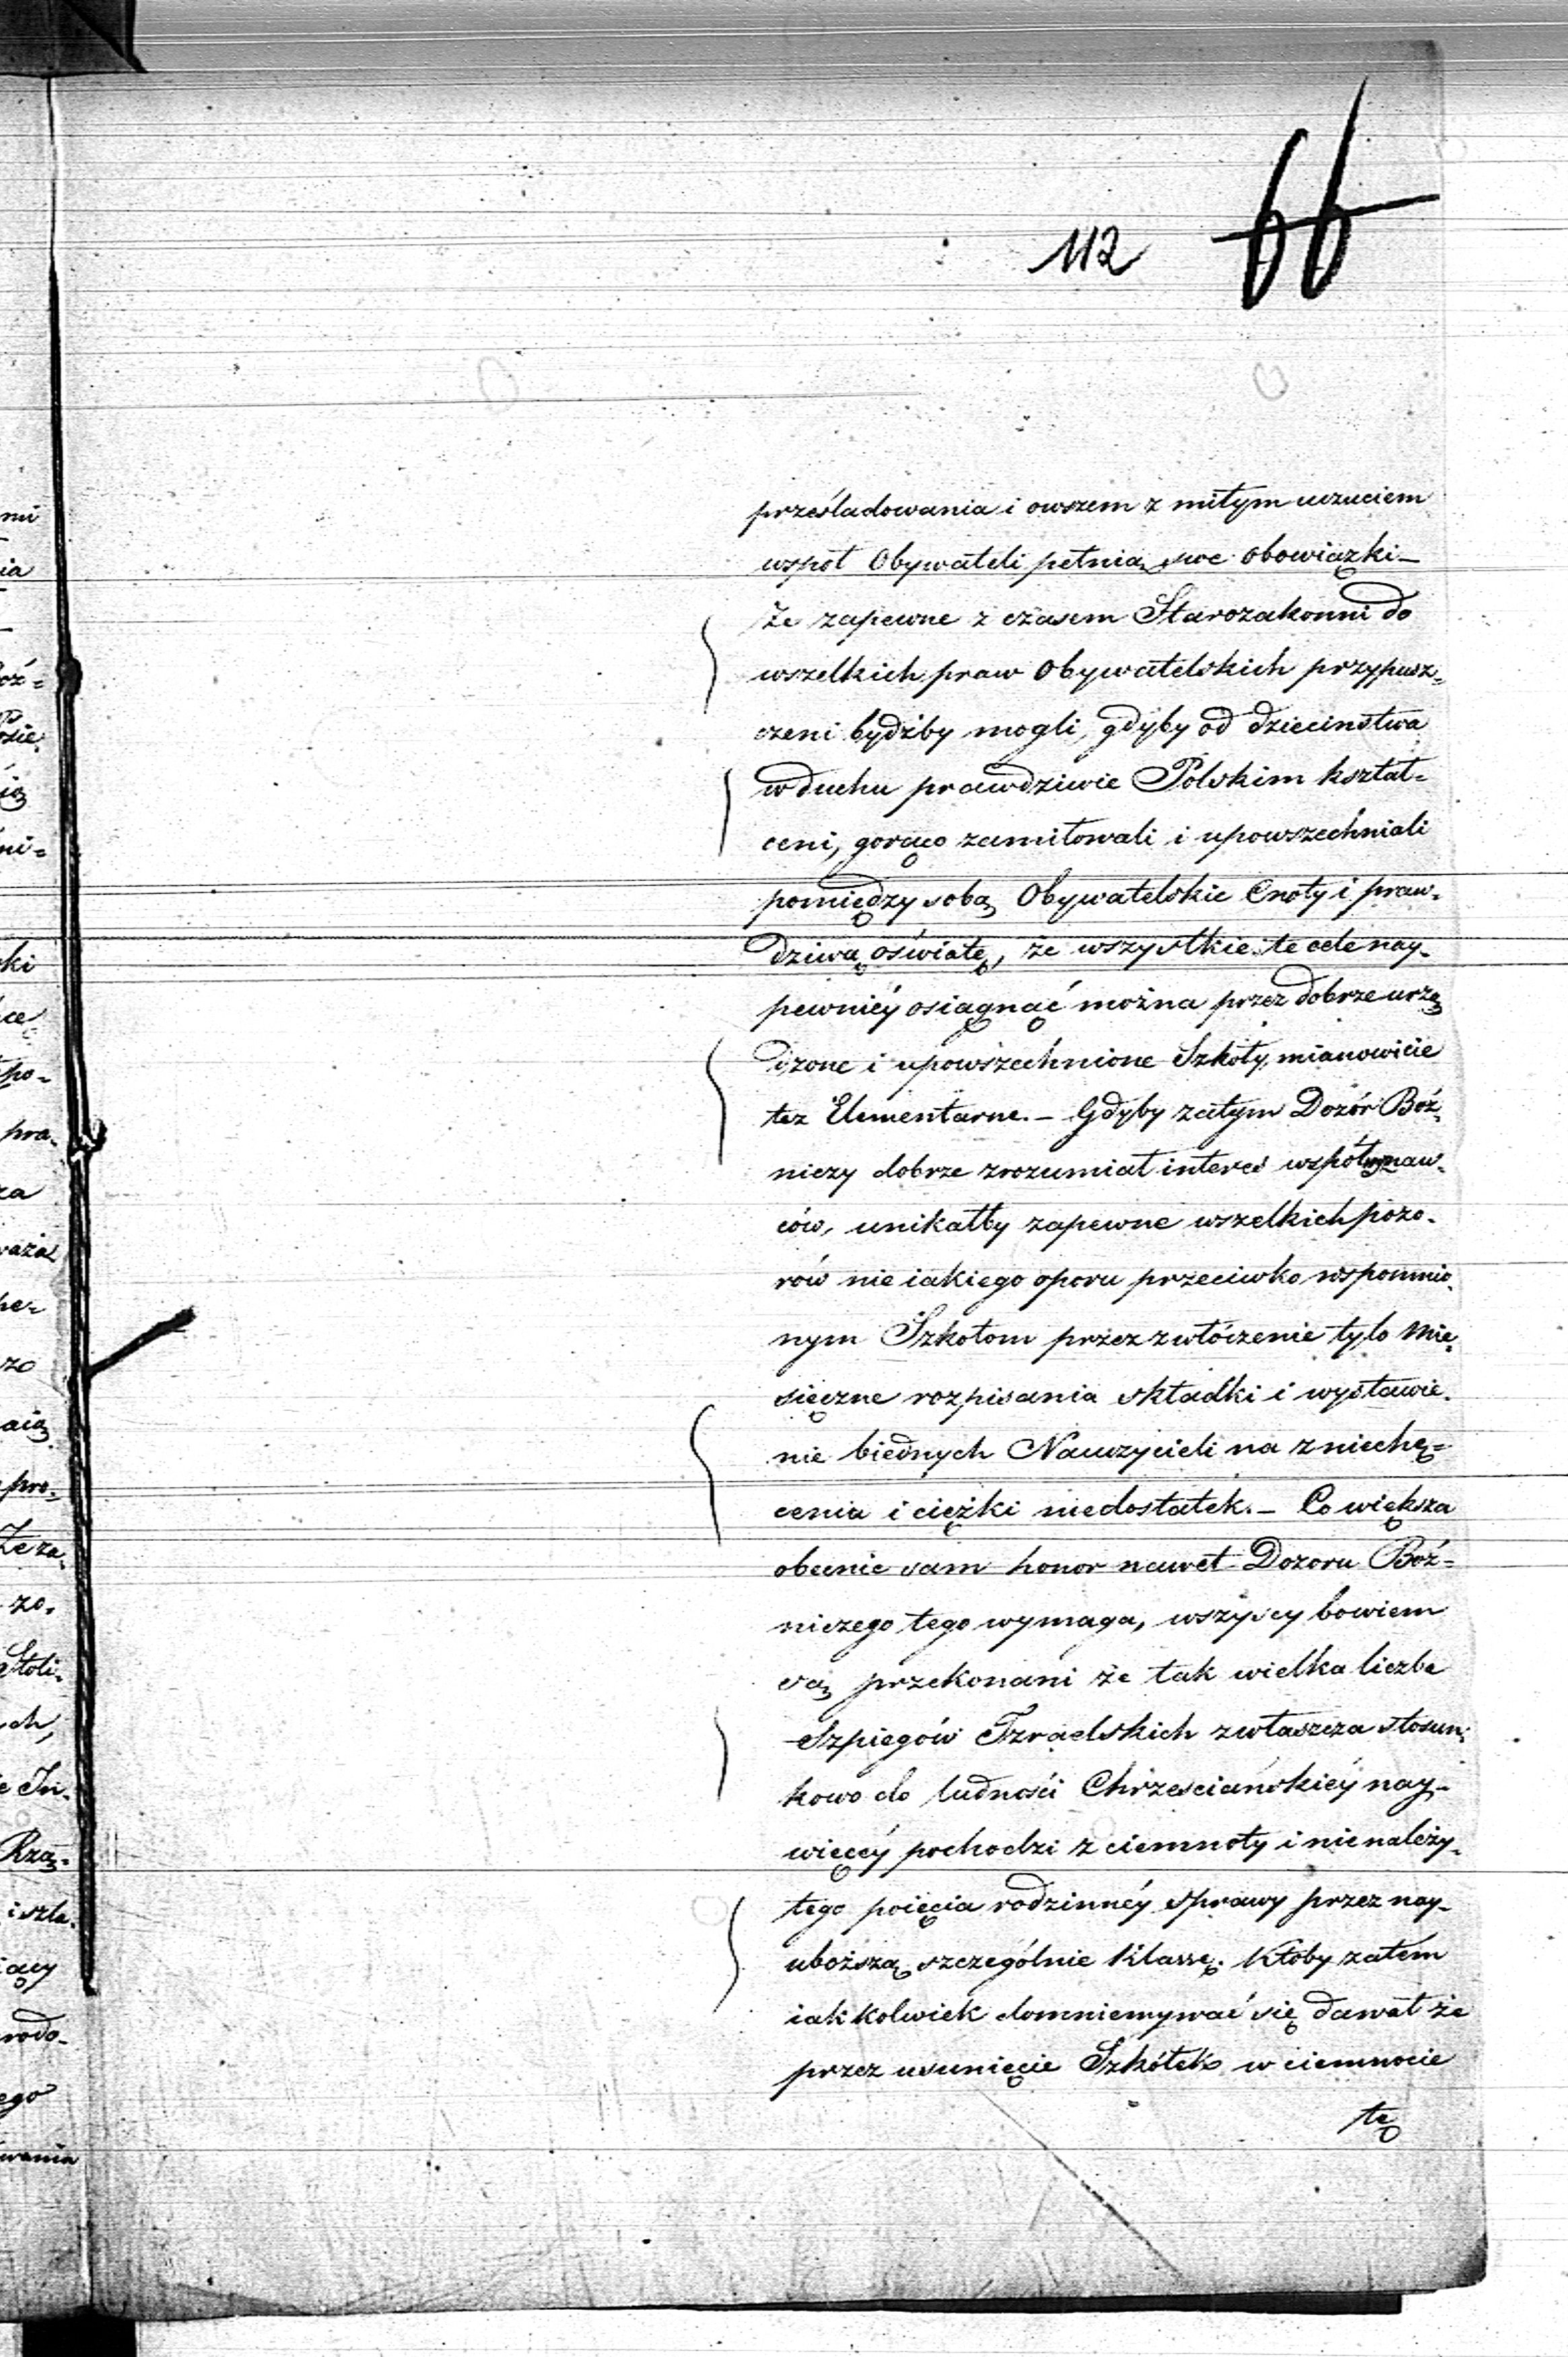 112 66
prześladowania i owszem z miłym uczuciem
wspoł Obywateli pełnią swe obowiązki—
Że zapewne z czasem Starozakonni do
wszelkich praw Obywatelskich przypusz=
czeni bydźby mogli, gdyby od dzieciństwa
w duchu prawdziwie Polskim kształ=
ceni, gorąco zamiłowali i upowszechniali
pomiędzy sobą Obywatelskie Cnoty i praw=
dziwą oświatę, że wszystkie te cele nay=
pewniéy osiągnąć można przez dobrze urzą
dzone i upowszechnione Szkoły, mianowicie
też Elementarne.— Gdyby zatym Dozór Boź=
niczy dobrze zrozumiał interes współwyznaw=
ców, unikałby zapewne wszelkich pozo=
rów nie iakiego oporu przeciwko wspomnio=
nym Szkołom przez zwłóczenie tylo Mie=
sięczne rozpisania składki i wystawie=
nie biednych Nauczycieli na zniechę=
cenia i ciężki niedostatek.— Co większa
obecnie sam honor nawet Dozoru Boź=
niczego tego wymaga, wszyscy bowiem
są przekonani że tak wielka liczba
Szpiegów Izraelskich zwłaszcza stosun=
kowo do ludności Chrześciańskiéy nay=
więcéy pochodzi z ciemnoty i nie należy=
tego poięcia rodzinnéy sprawy przez nay=
uboższą szczególnie Klassę. Ktoby zatem
iak kolwiek domniemywać się dawał że
przez usunięcie Szkółek w ciemnocie
tę